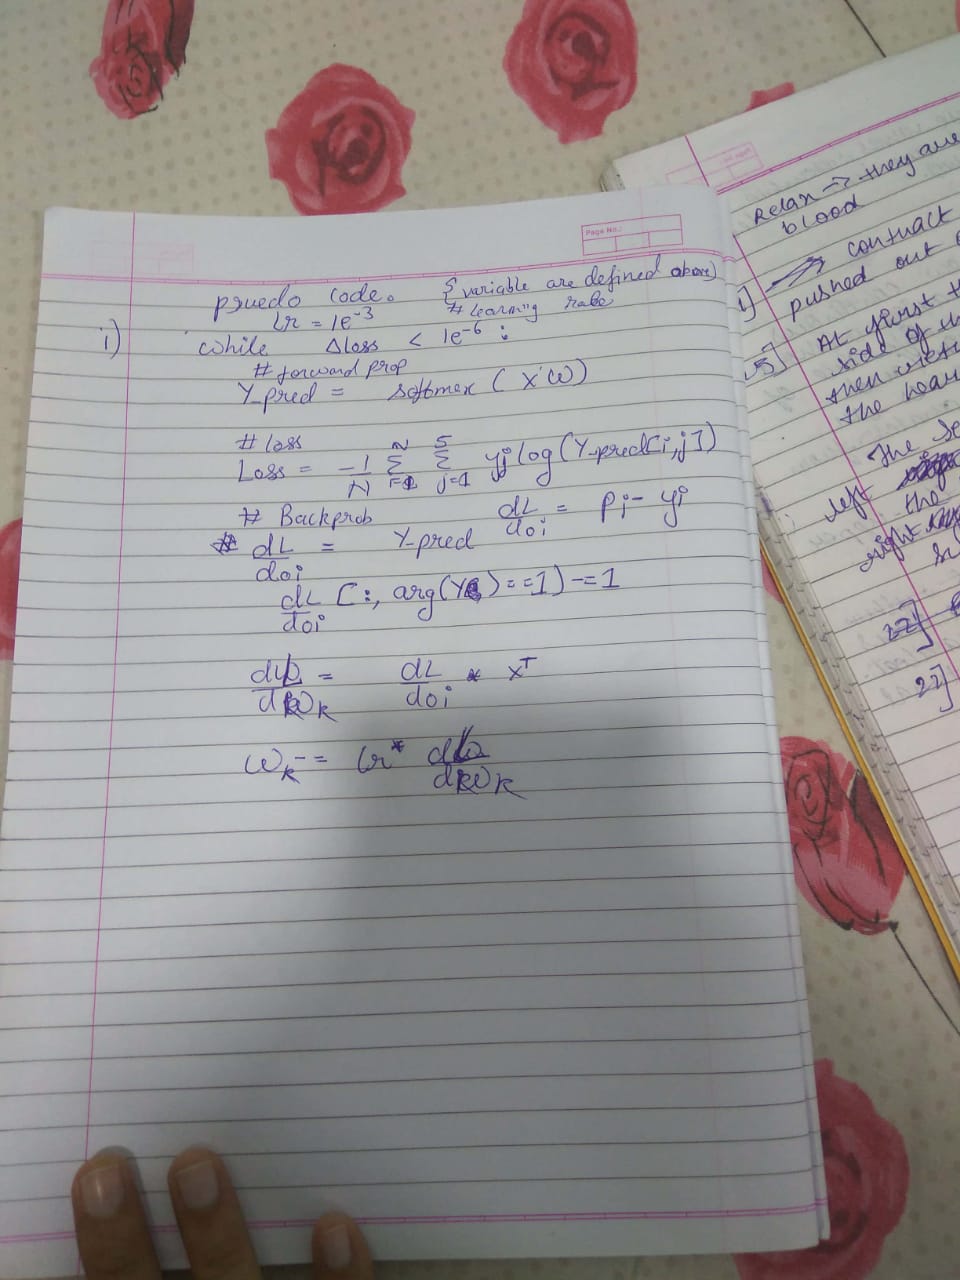 Page No.:
pruedo code. { variable are defined above}
Lr = 1e^-3 # learning rate
i) while Δloss < 1e^-6 :
# forward prop
Y_pred = softmax ( X'W)
# loss
Loss = -1/N Σ_{i=1}^{N} Σ_{j=1}^{5} yj log(Y-pred[i,j])
# Backprob dL/doi = Pi - yi
dL/doi = Y-pred
dL/doi [:, arg(Y)==1) -=1
dL/dWk = dL/doi * X^T
Wk -= lr* dL/dWk
Relax → they are
blood
→ contract
pushed out
At first
side of
then
the hear
The
left
the
right
22]